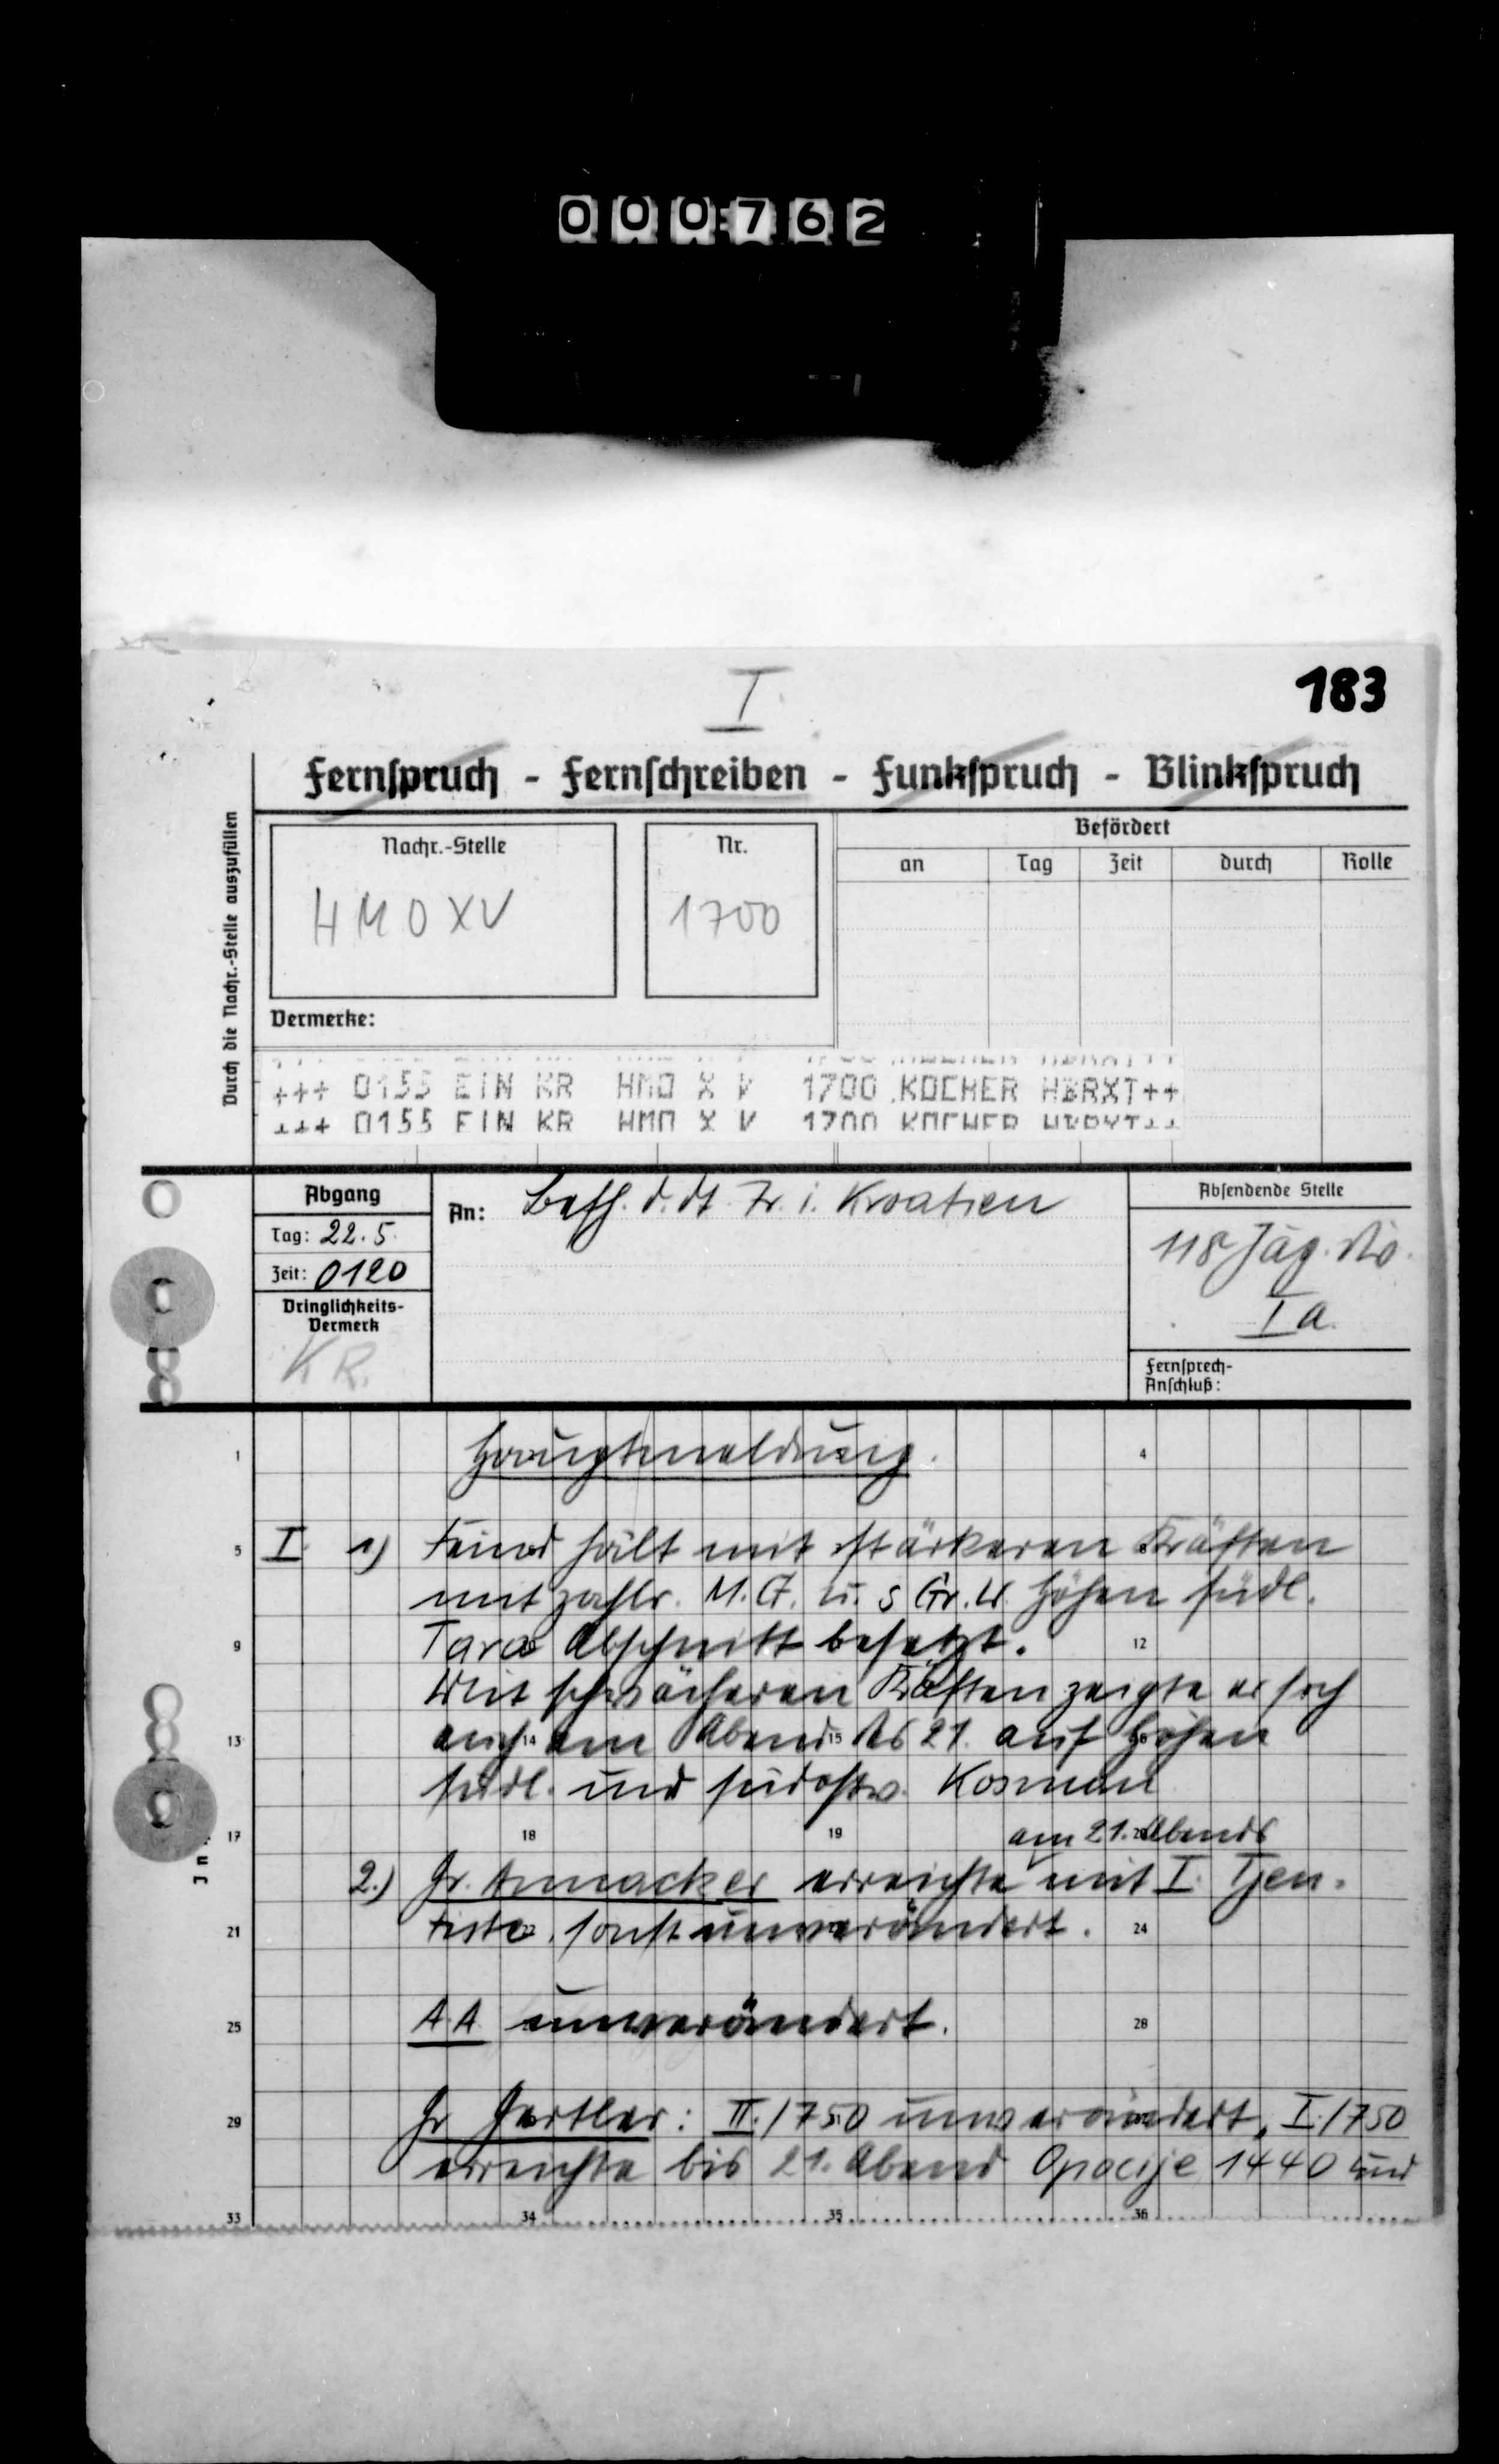 000762
I
183
Fernspruch - Fernschreiben - Funkspruch - Blinkspruch
Durch die Nachr.-Stelle auszufüllen
Nachr.-Stelle
Nr.
Befördert
an Tag Zeit durch Rolle
HMOXV
1700
Vermerke:
+++ 0155 EIN KR HMO X V 1700 KOCHER HBRXT++
+++ 0155 EIN KR HMO X V 1700 KOCHER HBRXT++
Abgang
Tag: 22.5.
Zeit: 0120
Dringlichkeits-
Vermerk
KR.
An: Befh. d. dt. Tr. i. Kroatien
Absendende Stelle
118 Jäg. Div.
Ia.
Fernsprech-
Anschluß:
Hauptmeldung.
I. 1) Feind hält mit stärkeren Kräften
mit zahlr. M.G. u. s Gr.W. Höhen südl.
Tara Abschnitt besetzt.
Mit schwächeren Kräften zeigte er sich
auch am Abend des 21. auf Höhen
südl. und südostw. Kosman
am 21. Abends
2.) Gr. Annacker erreichte mit I. Tjen-
tiste, sonst unverändert.
A.A. unverändert.
Gr Gertler: II./750 unverändert, I./750
erreichte bis 21. Abend Opacije 1440 und